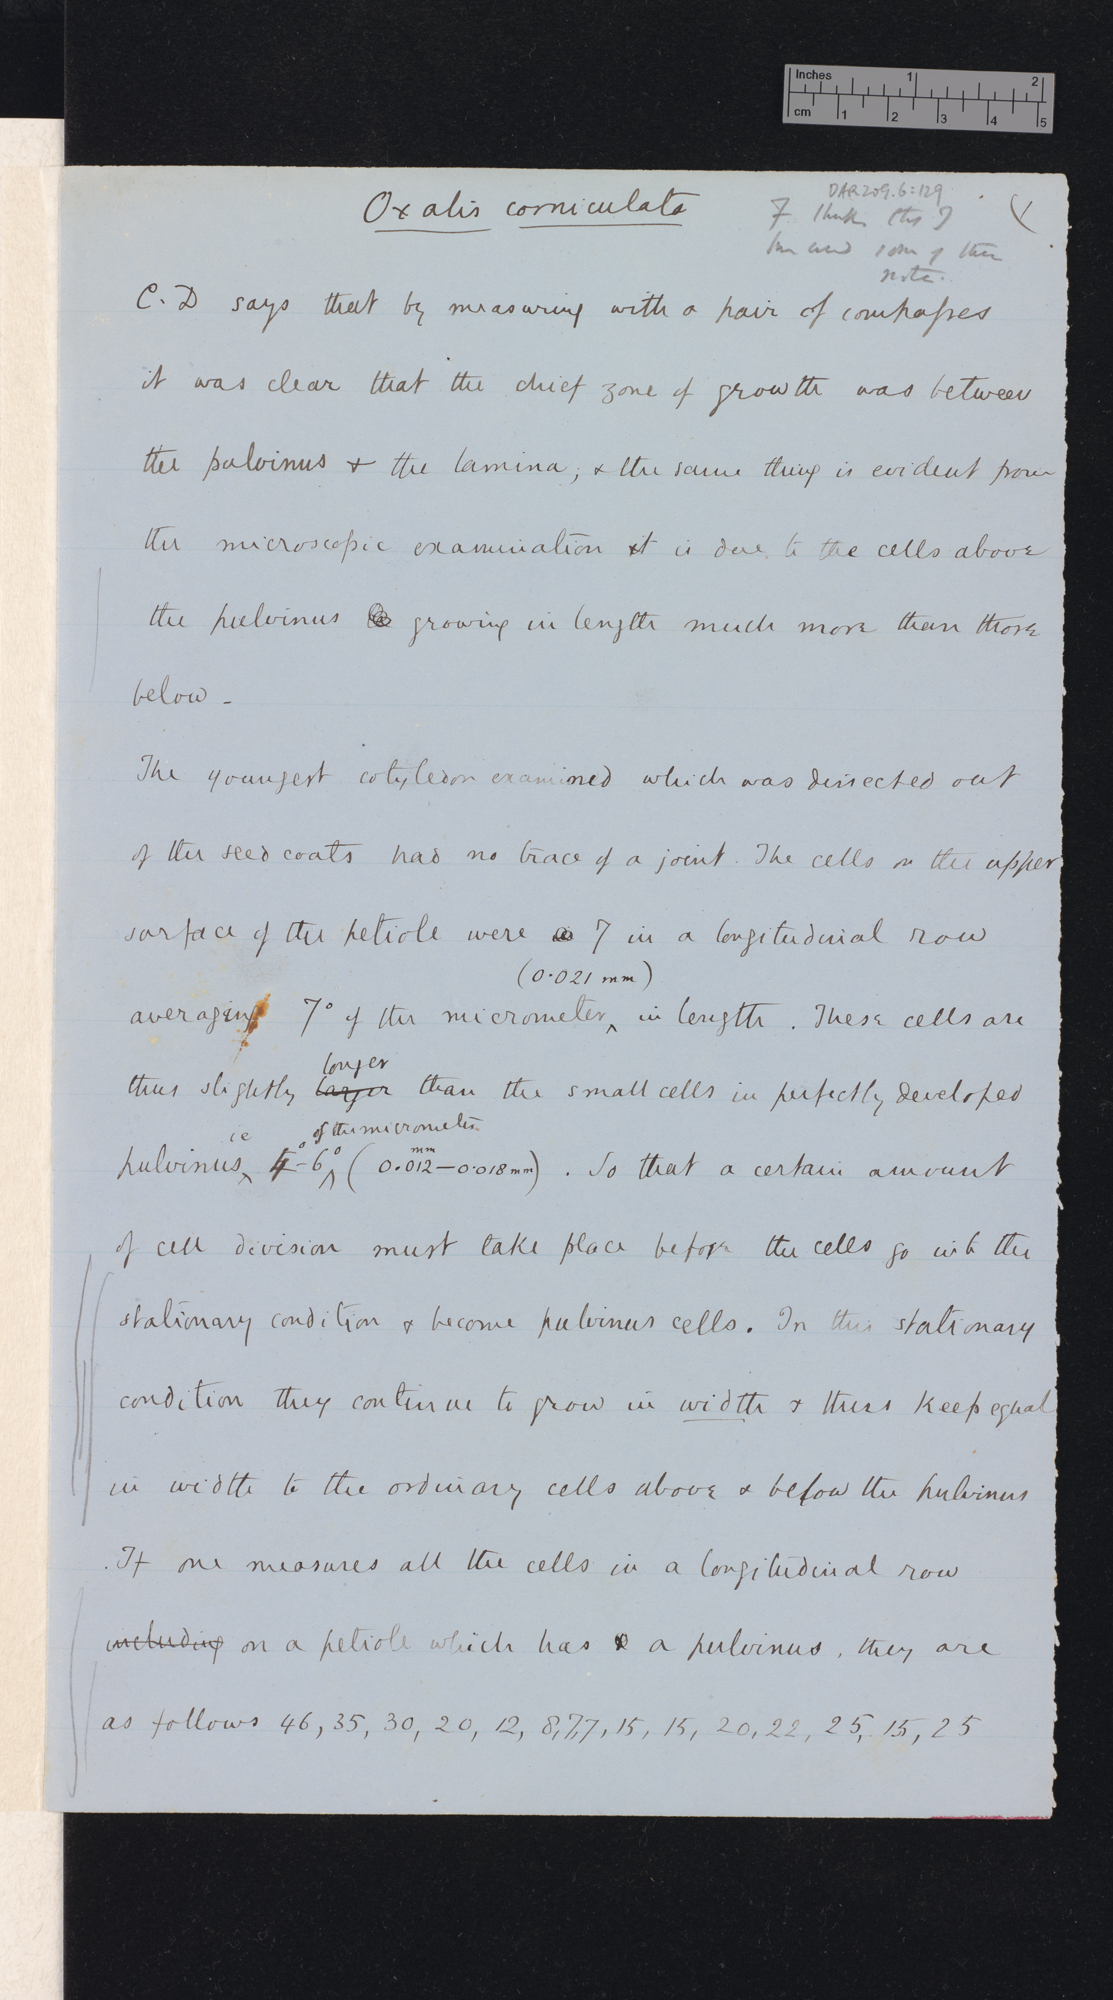 Inches 1 2
cm 1 2 3 4 5
DAR 209.6:129
Oxalis corniculata
I think this I
have used some of these
note.
C. D says that by measuring with a pair of compasses
it was clear that the chief zone of growth was between
the pulvinus & the lamina; & the same thing is evident from
the microscopic examination it is due to the cells above
the pulvinus growing in length much more than those
below -
The youngest cotyledon examined which was dissected out
of the seed coats had no trace of a joint. The cells on the upper
surface of the petiole were 7 in a longitudinal row
(0.021 mm)
averaging 7° of the micrometer ‸ in length. These cells are
longer
thus slightly larger than the small cells in perfectly developed
ie of the micrometer mm
pulvinus ‸ 4°-6° ‸ (0.012-0.018 mm). So that a certain amount
of cell division must take place before the cells go into the
stationary condition & become pulvinus cells. In this stationary
condition they continue to grow in width & thus keep equal
in width to the ordinary cells above & below the pulvinus
. If one measures all the cells in a longitudinal row
including on a petiole which has a pulvinus, they are
as follows 46, 35, 30, 20, 12, 8,7,7, 15, 15, 20, 22, 25, 15, 25